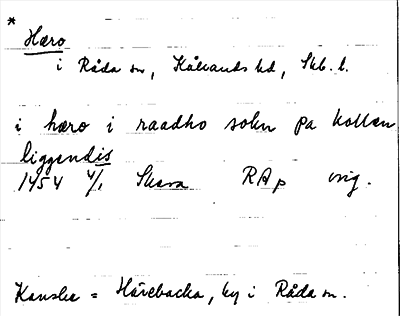 *
Hæro
i Råda sn, Kållands hd, Skb. l.
i hæro i raadho sokn pa kollen
liggendis
1454 4/1 Skara RAp orig.
Kanske = Härebacka, by i Råda sn.